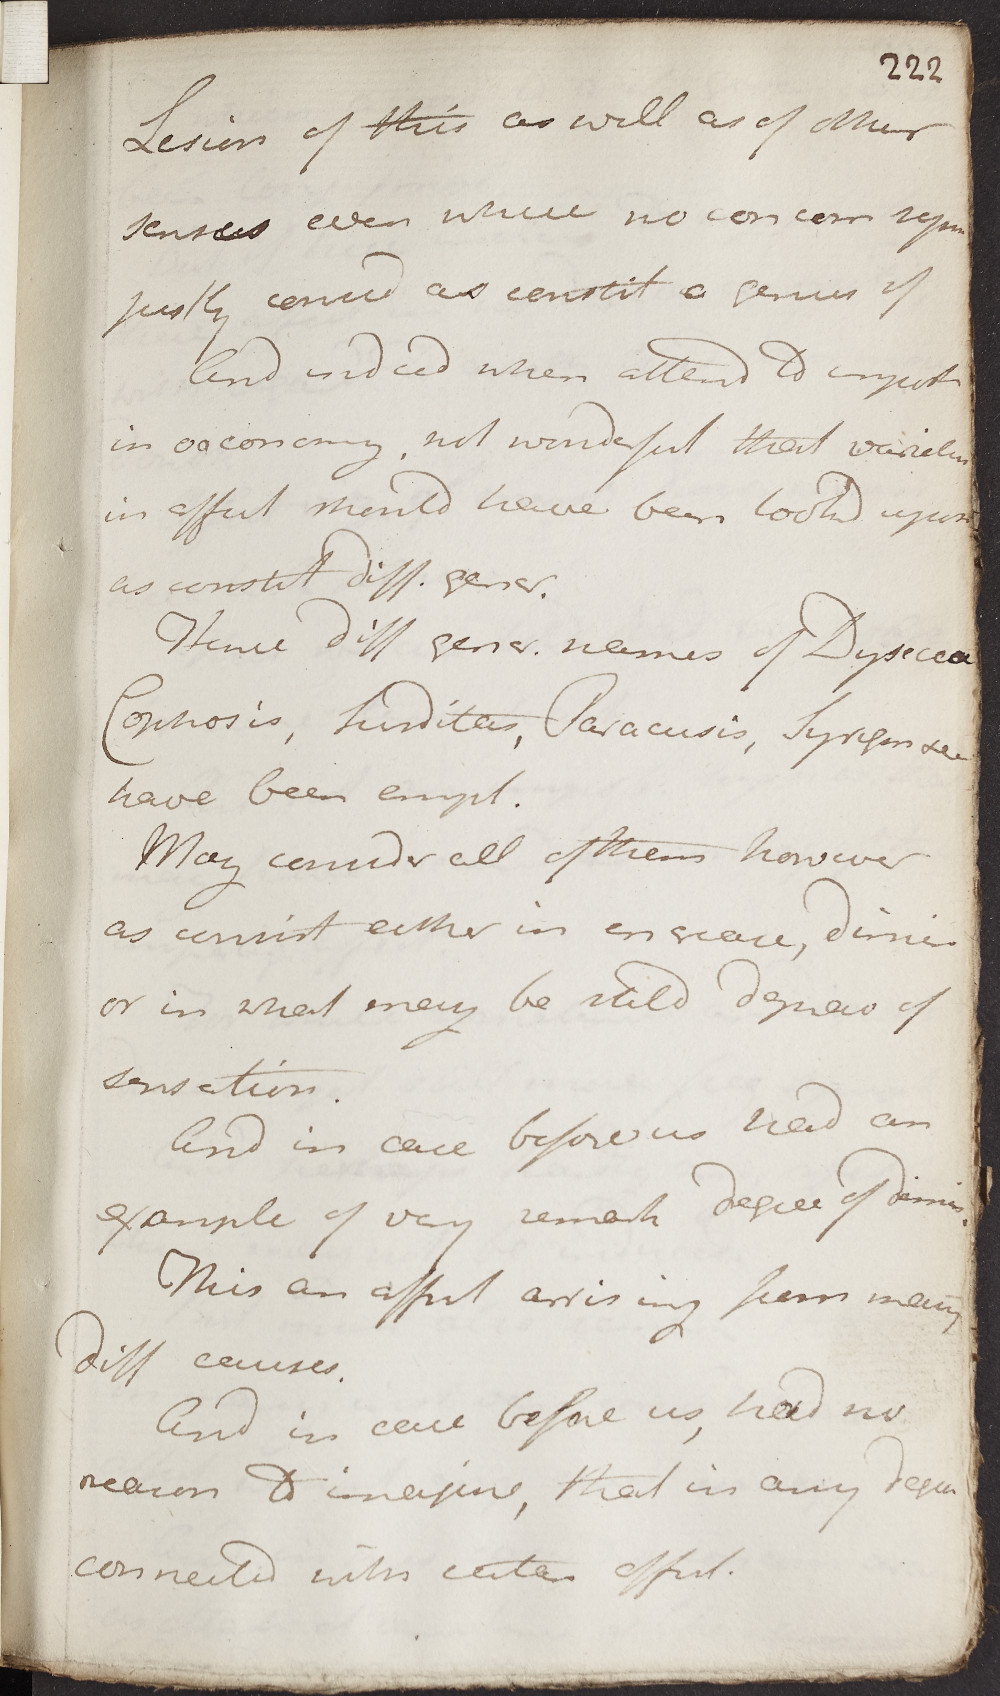 222
Lesion of this as well as of other
senses even where no concern sym
justly consid as constit a genus of
And indeed when attend to import
in oaconomy, not wonderful that varieties
in affect should have been lookd upon
as constit diff. gener.
Hence diff gener. names of Dysecea
Cophosis, Surditas, Paracusis, Syrigmus &c
have been empl.
May consider all of them however
as consist either in encrease, dimin
or in what may be stild deprav of
sensation.
And in case before us had an
example of very remark degree of dimin.
This an affect arrising from many
diff causes.
And in case before us, had no
reason to imagine, that in any degree
connected with cutan affect.